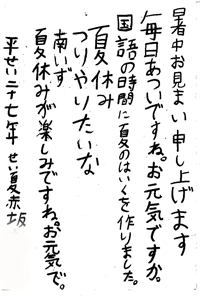 暑中お見まい申し上げます
毎日あついですね。お元気ですか。
国語の時間に夏のはいくを作りました。
夏休み
つりやりたいな
南いず
夏休みが楽しみですね。お元気で。
平せい二十七年 せい夏赤坂